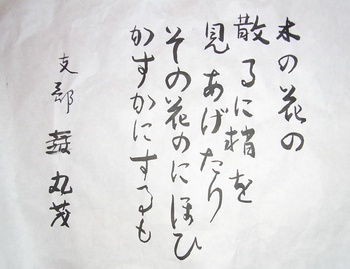 木の花の
散るに梢を
見あげたり
その花のにほひ
かすかにするも
支部 丸茂